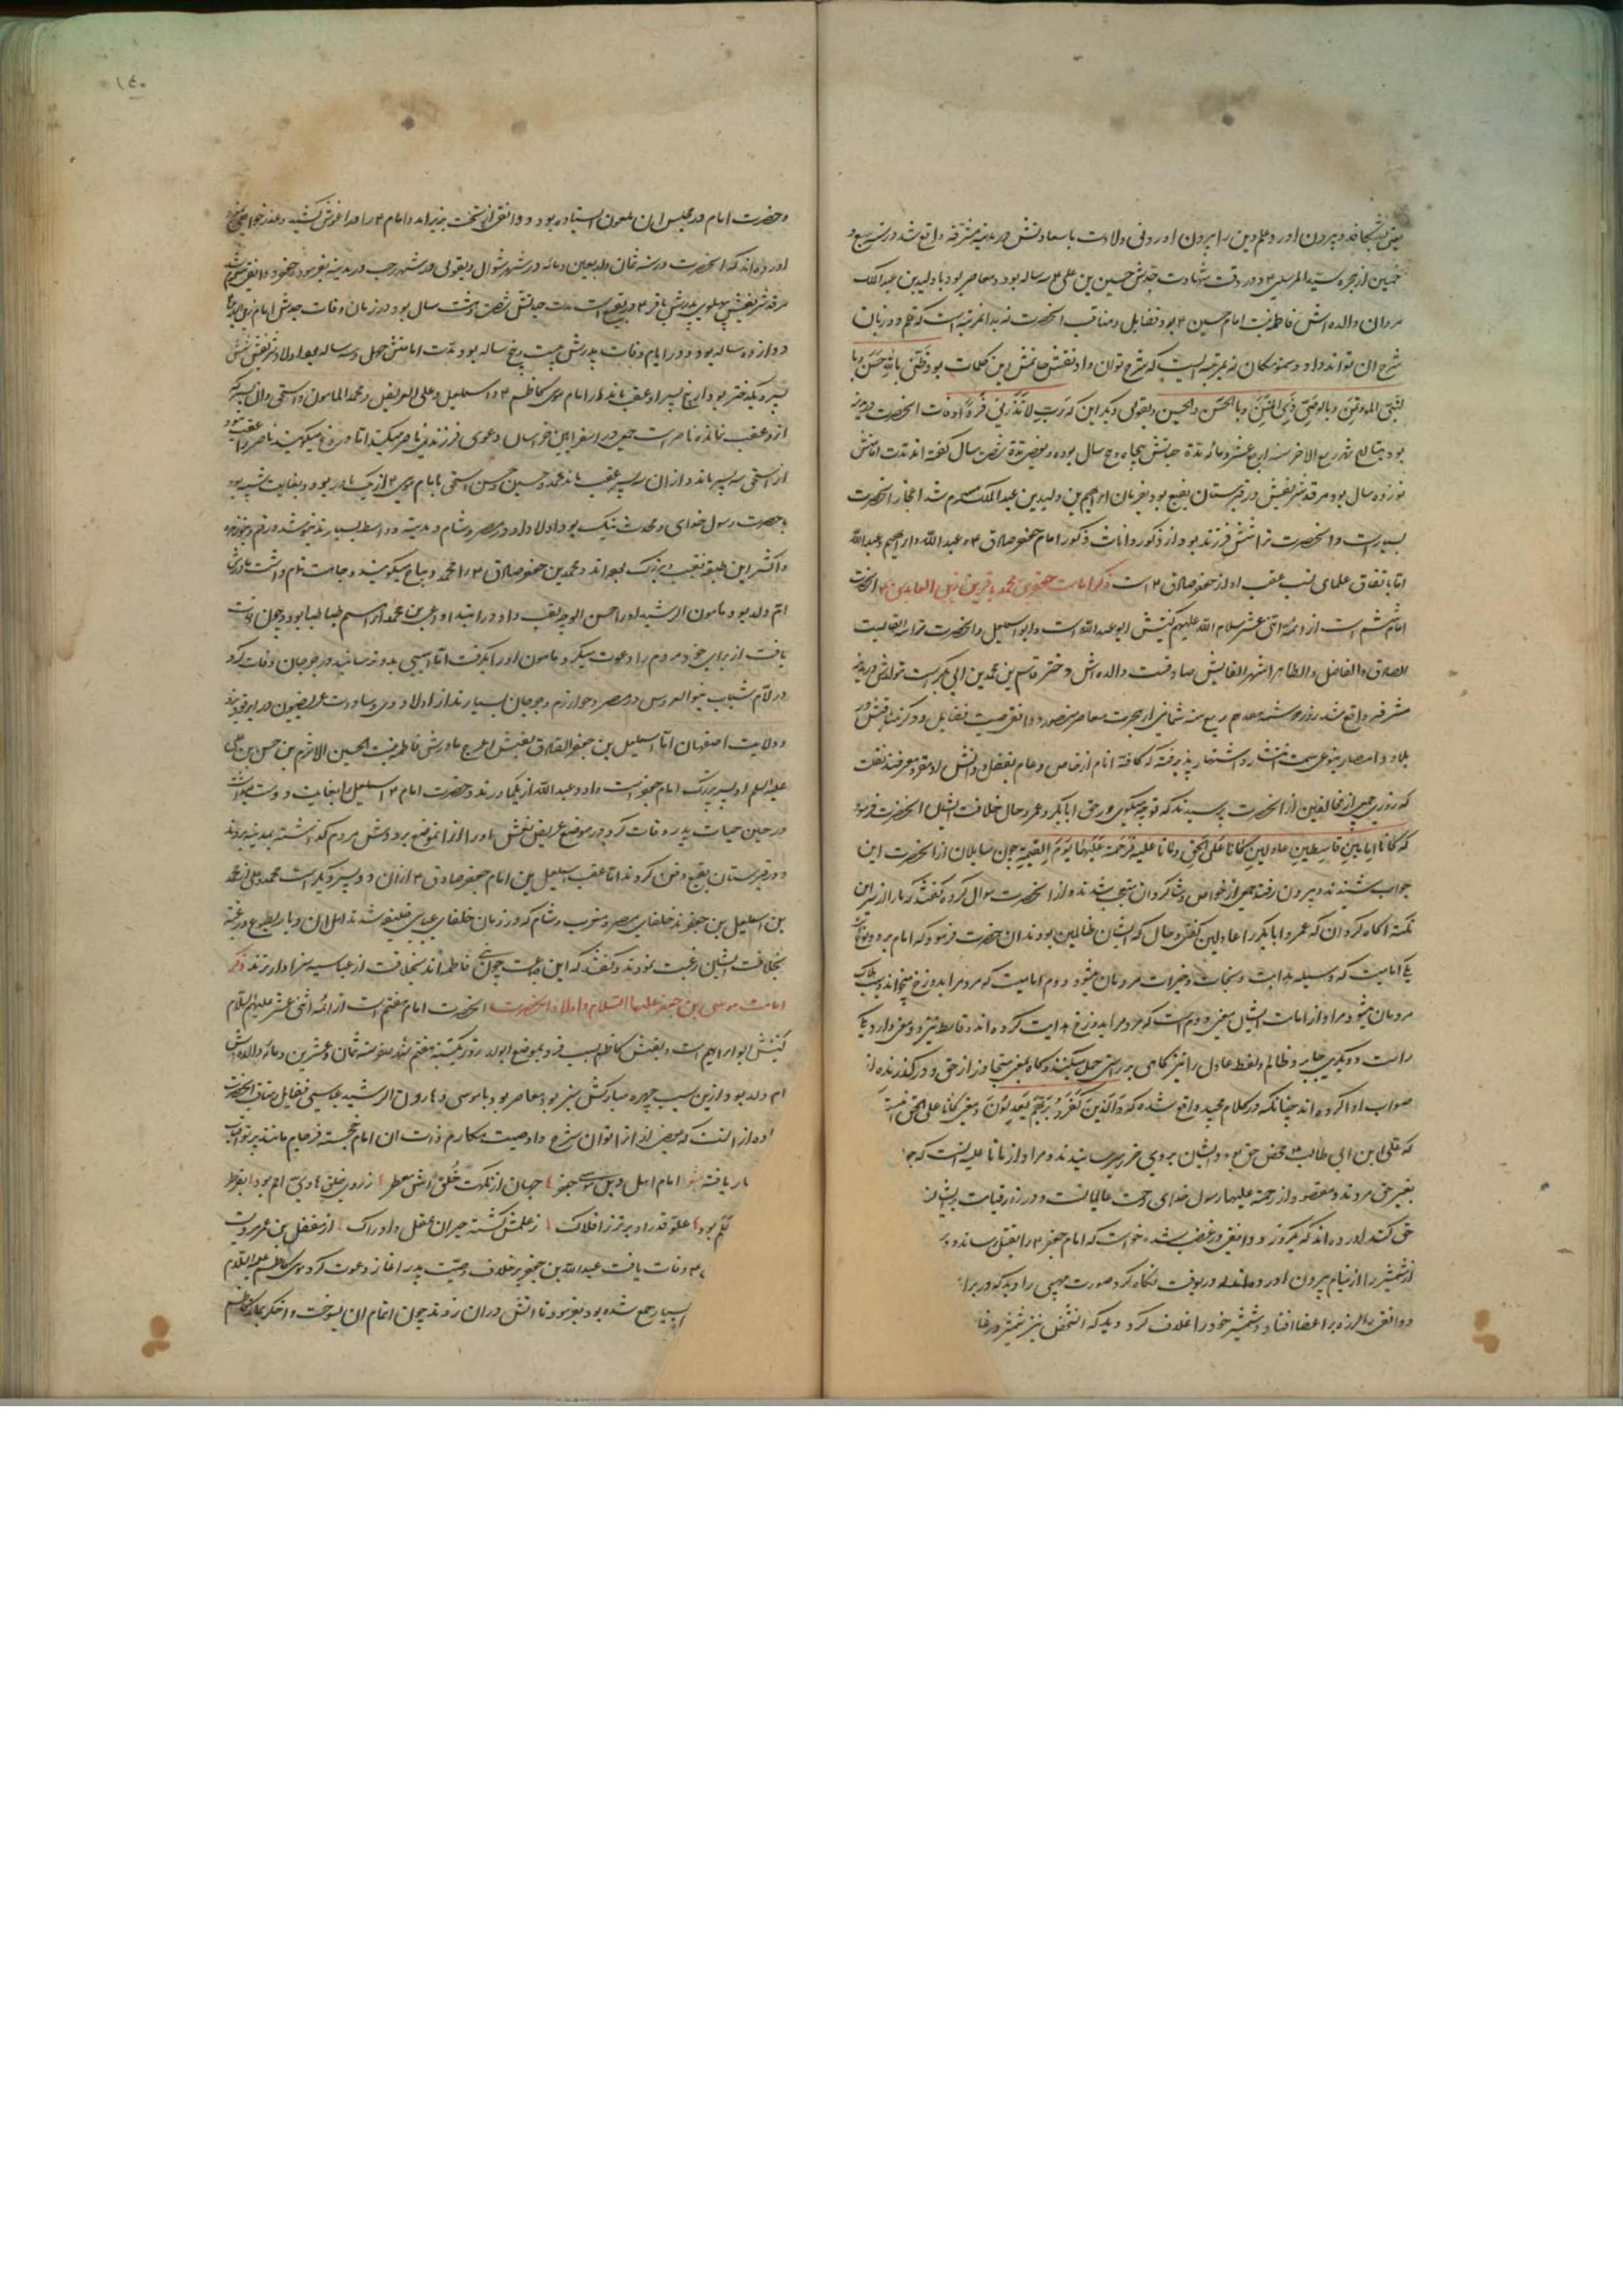 یعنی بشکافد و بیرون آورد و علم دین را بیرون آوردنی ولادت باسعادتش در مدینه مشرفه واقع شد در سنه سبع و
خمسین از هجره سید المرسلین و در وقت شهادت جدش حسین بن علی ۴ سه ساله بود و معاصر بود با ولید بن عبدالملک
مروان والده اش فاطمه بنت امام حسین ۴ بود و فضایل و مناقب آنحضرت نه بدان مرتبه است که قلم دو زبان
شرح آن تواند داد و سمو مکان نه بمرتبه ایست که شرح توان داد نقش خاتمش این کلمات بود ظنی بالله حسن و با
لنبی المؤتمن وبالوصی ذی المنن وبالحسین والحسن و بقولی دیگر این که رب لا تذرنی فردا وفات آنحضرت در مدینه
بود بتاریخ شهر ربیع الاخر سنه اربع عشر و مائه مدة حیاتش پنجاه و پنج سال بوده و بعضی مدة شصت سال گفته اند مدت امامتش
نوزده سال بود مرقد شریفش در قبرستان بقیع بود بفرمان ابراهیم بن ولید بن عبدالملک مسموم شد اعجاز آنحضرت
بسیار است و آنحضرت را شش فرزند بود از ذکور و اناث ذکور امام جعفر صادق ۴ و عبدالله و ابراهیم و عبدالله
اما باتفاق علمای نسب عقب او از جعفر صادق ۴ است ذکر امامت جعفر بن محمد باقر بن زین العابدین ۴ آنحضرت
امام ششم است از ائمه اثنی عشر سلام الله علیهم کنیتش ابو عبدالله است و ابو اسمعیل و آنحضرت را سه القابست
الصادق والفاضل والطاهر اشهر القابش صادقست والده اش دختر قاسم بن محمد بن ابی بکر است تولدش در مدینه
مشرفه واقع شد روز دوشنبه هفدهم ربیع سنه ثمانین از هجرت معاصر منصور دوانقی صیت فضایل و ذکر مناقبش در
بلاد و امصار بنوعی سمت انتشار و اشتهار پذیرفته که کافه انام از خاص و عام بفضل و دانش او مقر و معرفند نقلست
که روزی جمعی از مخالفین از آنحضرت پرسیدند که تو چه میگوی در حق ابابکر و عمر و حال خلافت ایشان آنحضرت فرمود
که کانا امامین قاسطین عادلین کانا علی الحق وماتا علیه فرحمة علیهما یوم القیمه چون سایلان از آنحضرت این
جواب شنیدند و بیرون رفتند جمعی از خواص و شاکردان متعجب شدند و از آنحضرت سوال کرده گفتند که ما را از سر این
نکته اکاه کردان که عمر و ابابکر را عادلین گفتی و حال که ایشان ظالمین بودند آن حضرت فرمود که امام بر دو نوع است
یکی امامیست که وسیله هدایت و نجات و خیرات مردمان میشود و دوم امامیست که مردم را بدوزخ میخواند و سبب هلاک
مردمان میشود مراد از امامت ایشان معنی دوم است که مردم را بدوزخ هدایت کرده اند و قاسط نیز دو معنی دارد یکی
راست و دیگری جابر و ظالم و لفظ عادل را نیز کاهی بر راستی حمل میکنند و کاه بمعنی متجاوز از حق و در گذرنده از
صواب ادا کرده اند چنانکه در کلام مجید واقع شده که والذین کفروا بربهم یعدلون و معنی کانا علی الحق آنست
که علی ابن ابی طالب ۴ محض حق بود و ایشان بروی ضرر میرسانیدند و مراد از ماتا علیه آنست که
بغیر حق مردند و مقصود از رحمة علیهما رسول خدای رحمت عالمیانست و در روز قیامت بر ایشان
حق کند آورده اند که یکروز دوانقی در غضب شده خواست که امام جعفر ۴ را بقتل رساند
شمشیر را از نیام بیرون آورد در آنوقت نکاه کرد صورت مهیبی را دید که در برابر
دوانقی را لرزه بر اعضا افتاد و شمشیر خود را غلاف کرد دید که آنشخص نیز شمشیر در غلا
۱۴۰
و حضرت امام در مجلس آن ملعون ایستاده بود دوانقی از تخت بزیر آمد و امام ۴ را در آغوش کشید و عذر خواهی نمود
آورده اند که آنحضرت در سنه ثمان و اربعین و مائه در شهر شوال و بقولی در شهر رجب در مدینه بفرموده جعفر دوانقی مسموم شد
مرقد شریفش پهلوی پدرش باقر ۴ در بقیع است مدت حیاتش شصت و هشت سال بود و در زمان وفات جدش امام زین العابدین
دوازده ساله بود و در ایام وفات پدرش بیست و پنج ساله بود و مدت امامتش چهل و سه ساله بود اولاد شریفش شش
پسر و یک دختر بود از پنج پسر او عقب ماند امام موسی کاظم ۴ و اسمعیل و علی العریضی و محمد المامون و اسحق و آن پسر که
از او عقب نمانده ناصر است جمعی در اسفراین خراسان دعوی فرزندی ناصر میکنند اما دروغ میکویند ناصر را عقب نبود
از اسحق سه پسر ماند و از آن سه پسر عقب ماند محمد و حسین و حسن اسحق با امام موسی ۴ از یک مادر بود و بغایت شبیه بود
بحضرت رسول خدای و محدث نیک بود و اولاد او در مصر و شام و مدینه و واسط بسیارند
و اکثر این طبقه نقیب و بزرگ بوده اند و محمد بن جعفر صادق ۴ را محمد دیباج میکویند و جلالت تمام داشت مادرش
ام ولد بود و مامون الرشید او را احسن الوجه لقب داد و در ابتدا دعوت محمد از اسم طباطبا بود و چون وفات
یافت از برای خود مردم را دعوت میکرد و مامون او را بگرفت اما آسیبی بدو نرسانید در جرجان وفات کرد
در ایام شباب بنو العروس در مصر و خوارزم و جرجان بسیارند از اولاد وی و سادات عریضیون در ابرقوه یزد
و ولایت اصفهان اما اسمعیل بن جعفر الصادق لقبش اعرج مادرش فاطمه بنت الحسین الاثرم بن حسن بن علی
علیه السلم او پسر بزرگ امام جعفر است و او و عبدالله از یکمادرند و حضرت امام ۴ اسمعیل را بغایت دوست میداشت
در حین حیات پدر وفات کرد در موضع عریض نعش او را از آنموضع بر دوش مردم گذاشته بمدینه بردند
و در قبرستان بقیع دفن کردند اما عقب اسمعیل بن امام جعفر صادق ۴ از آن دو پسر دیگر است محمد و علی از محمد
بن اسمعیل بن جعفرند خلفای مصر و مغرب و شام که در زمان خلفای عباسی خلیفه شدند اهل آن دیار بطوع و رغبت
بخلافت ایشان رغبت نمودند و گفتند که این جماعت چون بنی فاطمه اند بخلافت از عباسیه سزاوارترند ذکر
امامت موسی بن جعفر علیهما السلام و اولاد آنحضرت آنحضرت امام هفتم است از ائمه اثنی عشر علیهم السلام
کنیتش ابو ابراهیم است و لقبش کاظم بسبب فرو بموضع ابوا در روز یکشنبه هفتم شهر صفر سنه ثمان و عشرین و مائه والده اش
ام ولد بود و ازین سبب چهره مبارکش سبز بود معاصر بود با موسی و هارون الرشید عباسی فضایل و مناقب آنحضرت
زیاده از آنست که بعضی از آن توان شرح داد و صیت مکارم ذات آن امام خجسته فرجام مانند پرتو آفتاب
یافته شعر امام اهل دین موسی جعفر جهان از نکهت خلق خوشش معطر
بود علو قدر او برتر ز افلاک ز علمش گشته حیران عقل و ادراک از مفضل بن عمر مرویست
۴ وفات یافت عبدالله بن جعفر بر خلاف وصیت پدر آغاز دعوت کرد موسی کاظم علیه السلام
بسیار جمع شده بود بفرمود تا آتش در آن زدند چون تمام آن بسوخت و اخگر بماند